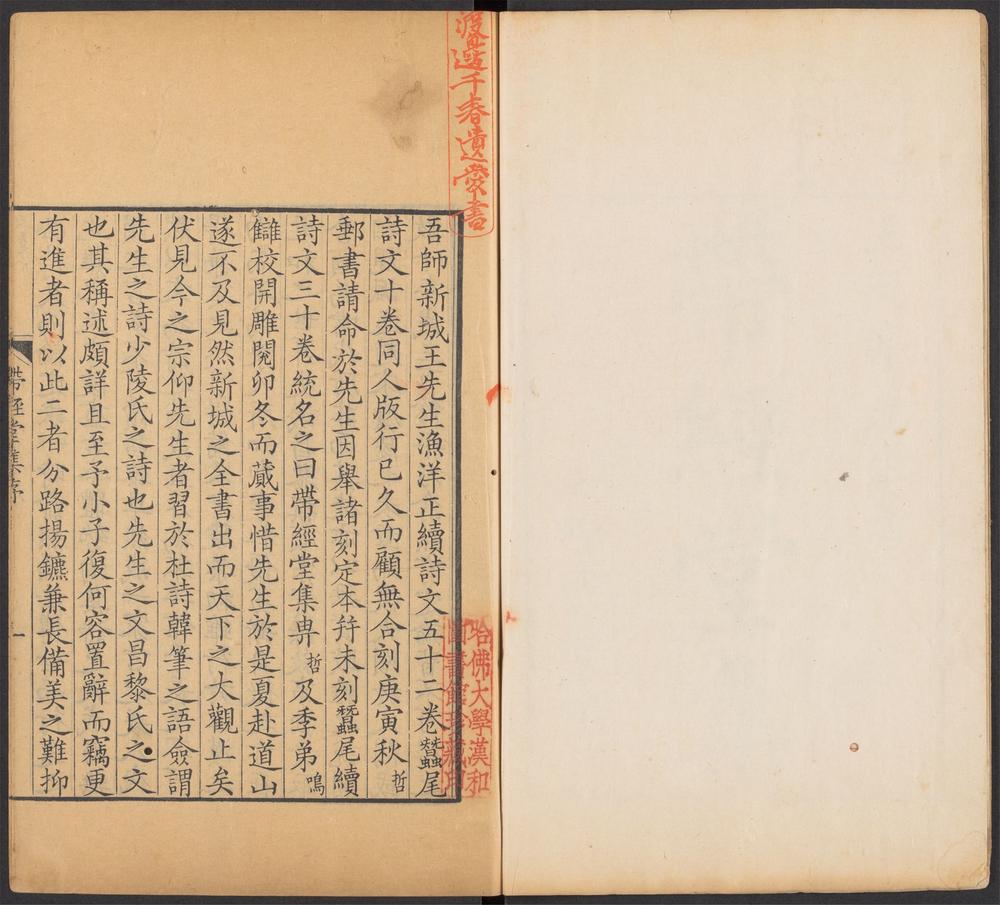 渡邉千春遺愛書
吾師新城王先生漁洋正續詩文五十二卷蠶尾
詩文十卷同人版行已久而顧無合刻庚寅秋哲
郵書請命於先生因舉諸刻定本并未刻蠶尾續
詩文三十卷統名之曰帶經堂集畀哲及季弟鳴
讎校開雕閱卯冬而蕆事惜先生於是夏赴道山
遂不及見然新城之全書出而天下之大觀止矣
伏見今之宗仰先生者習於杜詩韓筆之語僉謂
先生之詩少陵氏之詩也先生之文昌黎氏之文
也其稱述頗詳且至予小子復何容置辭而竊更
有進者則以此二者分路揚鑣兼長備美之難抑
帶經堂集序
一
哈佛大學漢和
圖書館珍藏印